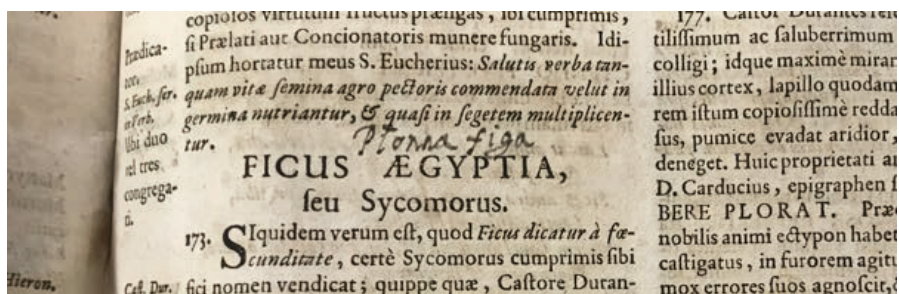 copiosos virtutum fructus prægnas, soi cumprimis,
si Prælati aut Concionatoris munere fungaris. Idi-
psum hortatur meus S. Eucherius: Salutis verba tan-
quam vitæ semina agro pectoris commendata velut in
germina nutriantur, & quasi in segetem multiplicen-
tur.
Prædica-
S. Euch. ser.
Ubi duo
vel tres
congrega-
ti.
Płonna figa
FICUS ÆGYPTIA,
seu Sycomorus.
173. SIquidem verum est, quod Ficus dicatur à fœ-
cunditate, certè Sycomorus cumprimis sibi
Cast. Dur. fici nomen vendicat; quippe quæ, Castore Duran-
Hieron.
177. Castor Durantes
tilissimum ac saluberrimum
colligi; idque maximè miran
illius cortex, lapillo quodam
rem istum copiosissimè redda
sus, pumice evadat aridior,
deneget. Huic proprietati a
D. Carducius, epigraphen
BERE PLORAT. Præ
nobilis animi ectypon habet
castigatus, in furorem agitu
mox errores suos agnoscit,